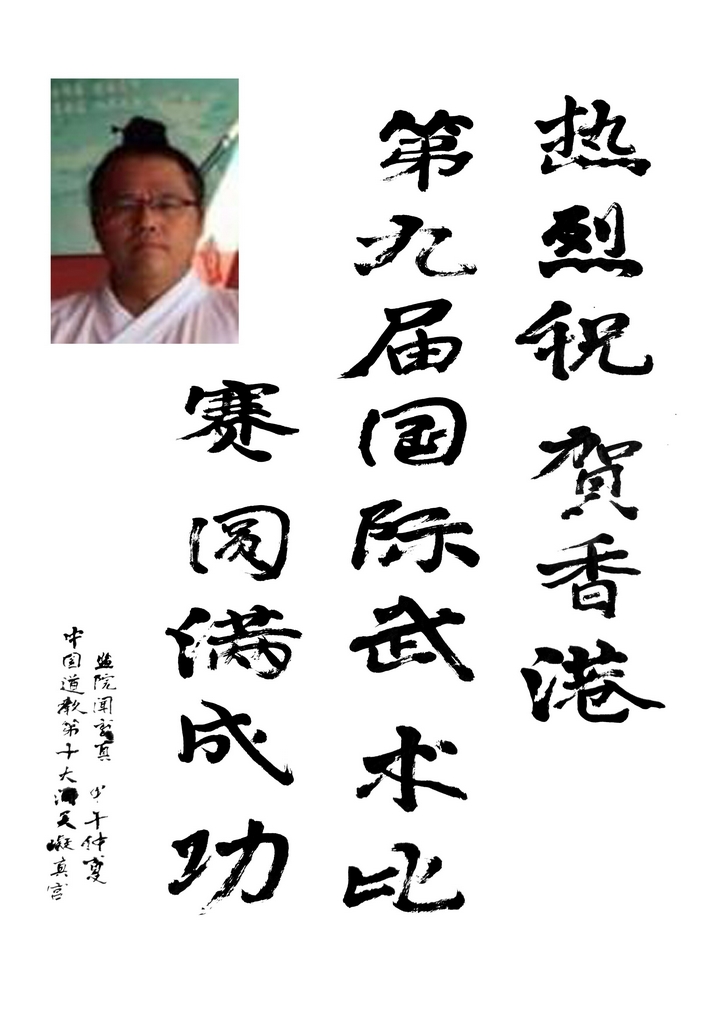 热烈祝贺香港
第九届国际武术比
赛圆满成功
监院闻玄真 甲午仲夏
中国道教第十大洞天凝真宫